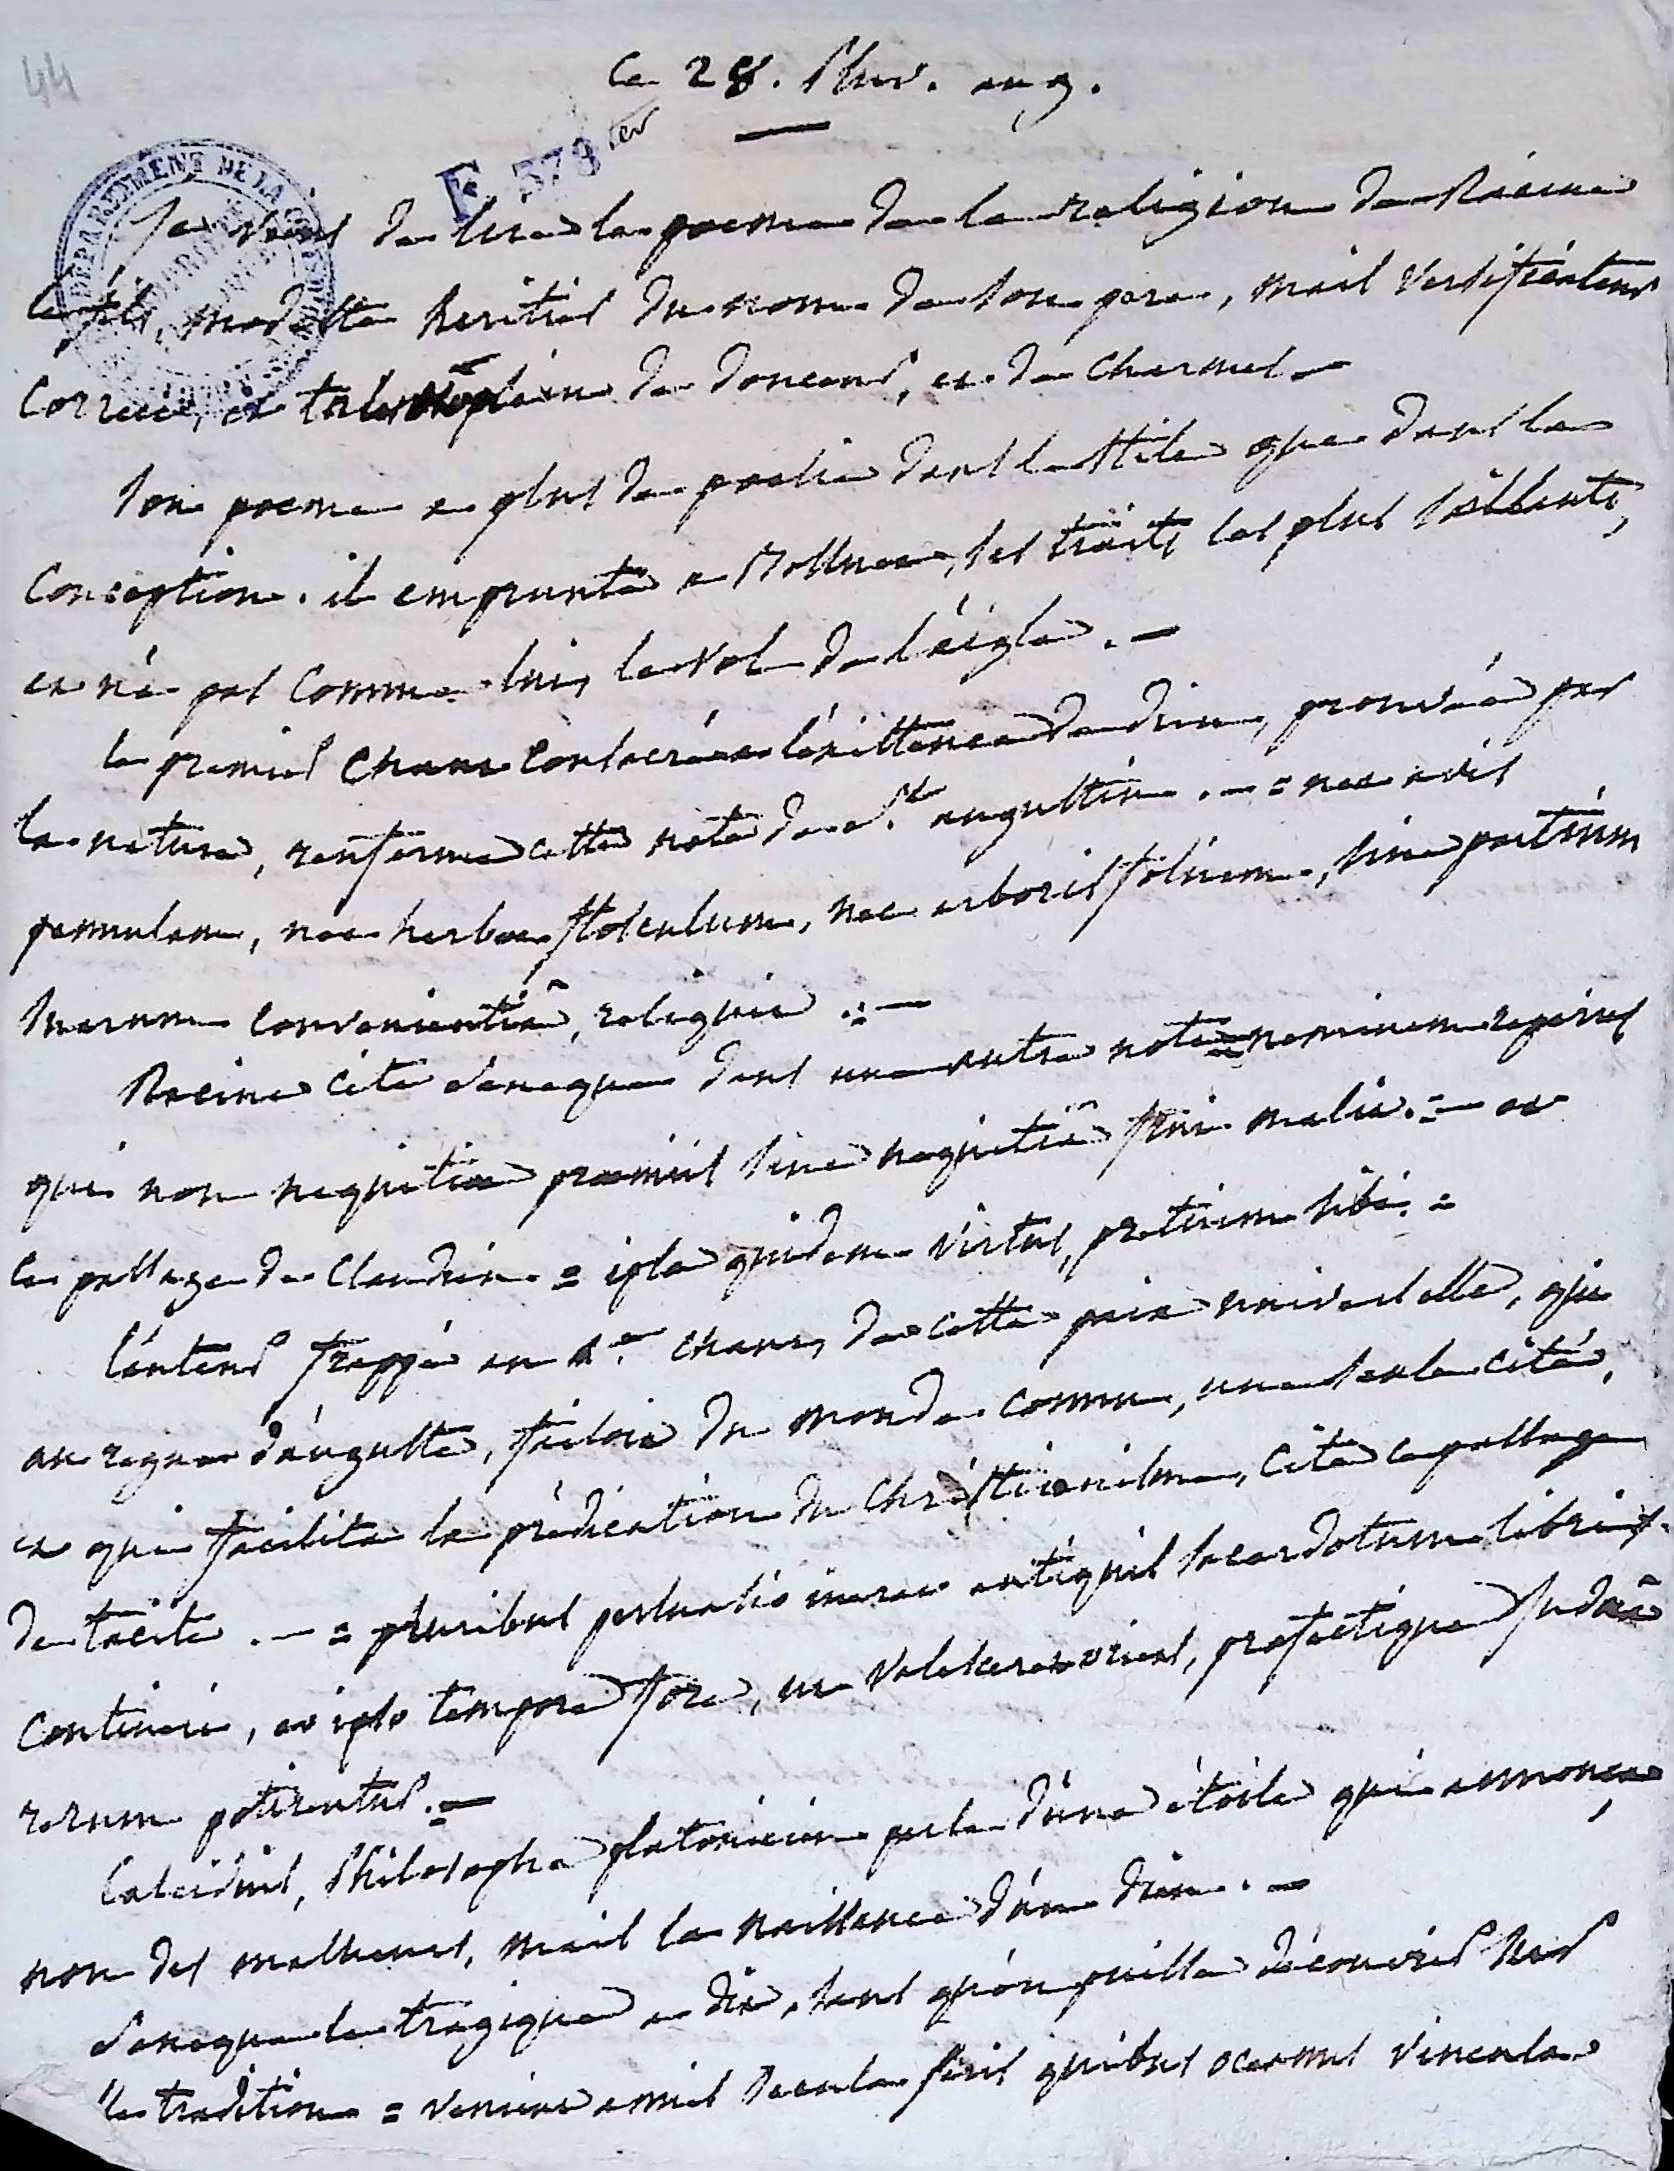 44
Ce 28. Pluv. an 9.
F 378 ter
DÉPARTEMENT DE LA CÔTE
Je viens de lire le poeme de la religion de Racine
le fils, modeste heritier du nom de son pere, mais versificateur
correct, et plein de douceur, et de charmes —
Son poeme a plus de poesie dans le stile que dans la
conception. il emprunte a Bossuet, ses traits les plus saillants,
et n'a pas comme lui, le vol de l'aigle. —
le premier chant consacré a l'existence de dieu, prouvée par
la nature, renferme cette note de St augustin. — = nec avis
pennulam, nec herbae flosculum, nec arboris folium, sine partium
suarum convenientiâ, reliquit =. —
Racine cite Seneque dans une autre note = neminem reperies
qui non nequitiae praemiis sine nequitiâ frui malit. = — et
ce passage de Claudien. = ipsa quidem virtus, pretium sibi. =
l'auteur frappé au 4.e chant, de cette paix universelle, qui
au regne d'auguste, faisoit du monde connu, une seule cité,
et qui facilita la prédication du Christianisme, cite ce passage
de tacite. — = pluribus persuasio inerat antiquis sacerdotum libris
contineri, eo ipso tempore fore, ut valesceret oriens, profectique Judaeâ
rerum potirentur. = —
Calcidius, Philosophe platonicien parle d'une étoile qui annonça,
non des malheurs, mais la naissance d'un dieu. —
Seneque le tragique a dit, sans qu'on puisse découvrir sur
la tradition = venient annis saecula seris quibus oceanus vincula